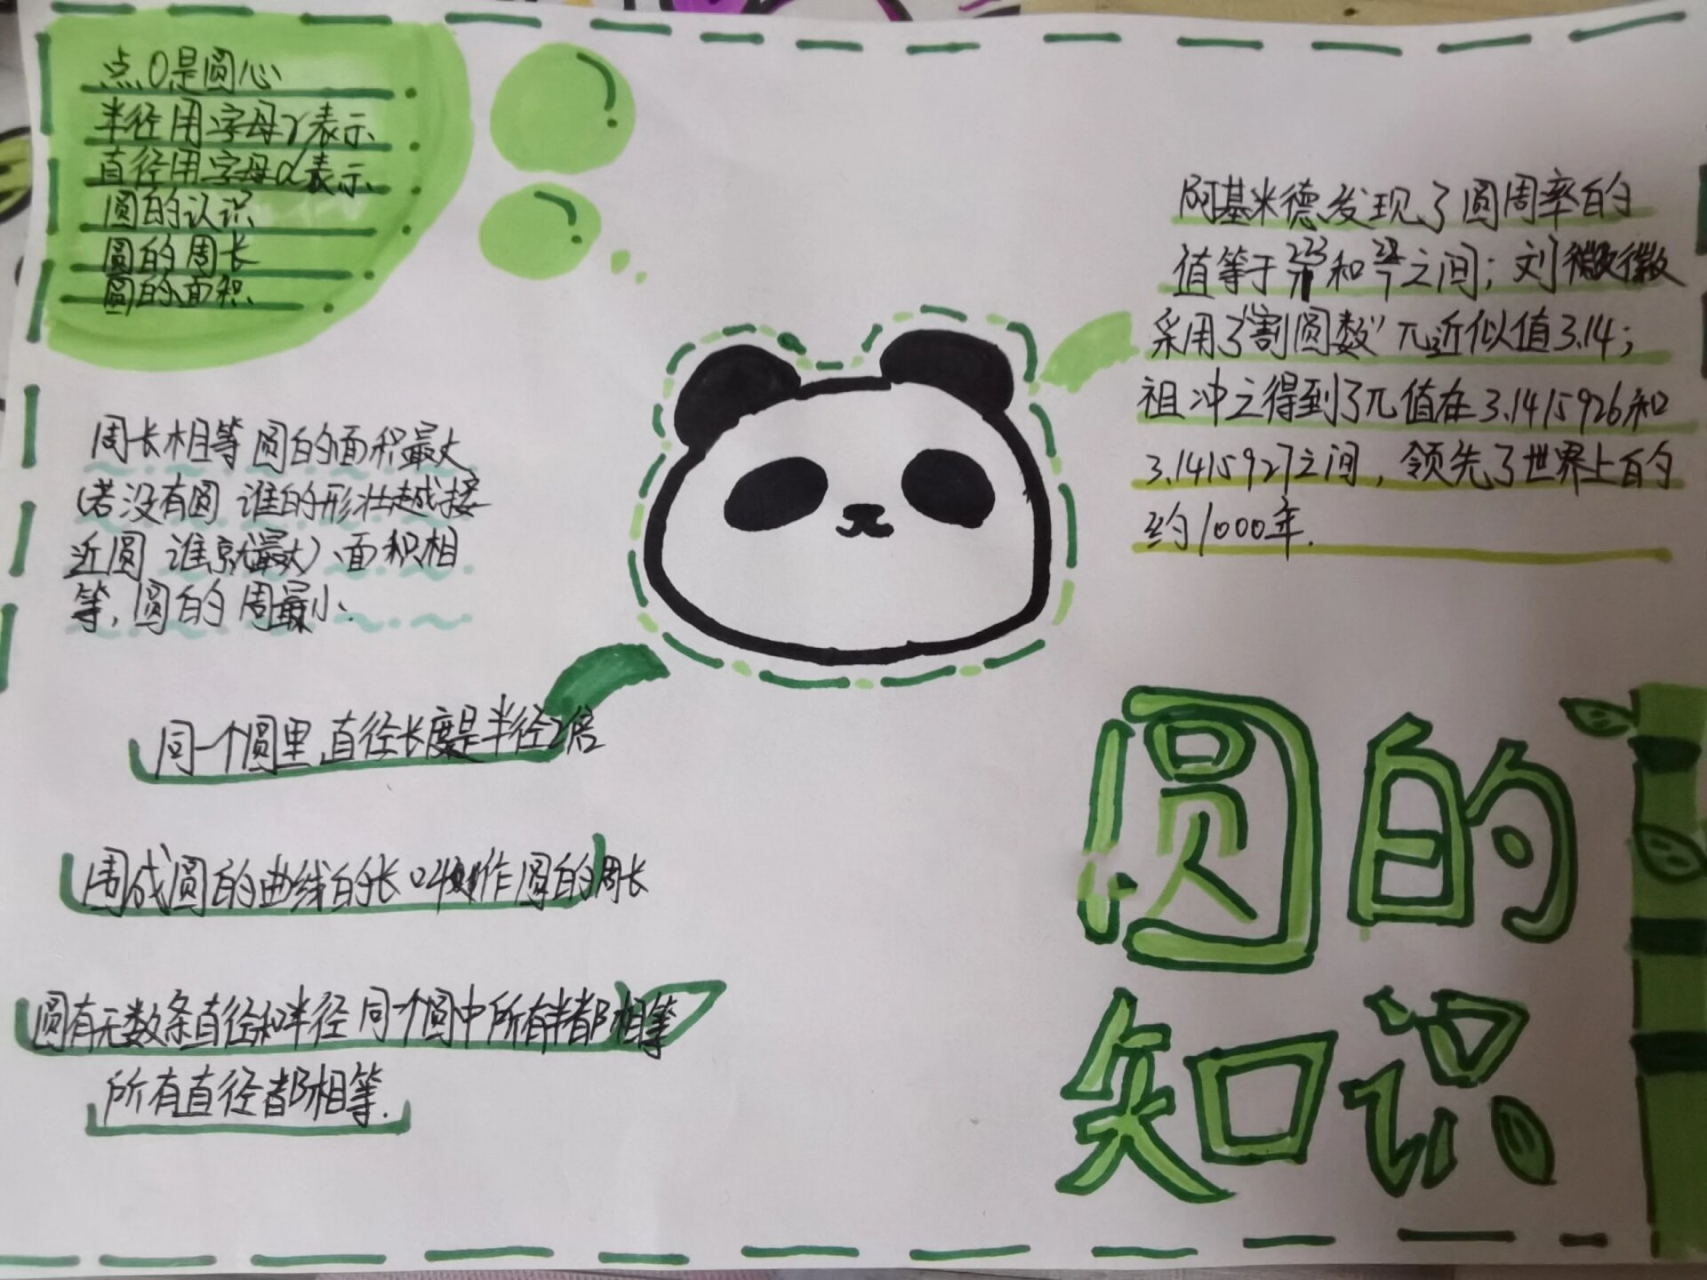 点O是圆心
半径用字母r表示
直径用字母d表示
圆的认识
圆的周长
圆的面积
周长相等 圆的面积最大
(若没有圆 谁的形壮越接
近圆 谁就最大)、面积相
等, 圆的周最小、
同一个圆里,直径长度是半径2倍
围成圆的曲线的长 叫作圆的周长
圆有无数条直径和半径 同一个圆中所有半都相等
所有直径都相等.
阿基米德发现了圆周率的
值等于 和 之间; 刘徽徽
采用了"割圆数"π近似值3.14;
祖冲之得到了π值在3.1415926和
3.1415927之间, 领先了世界上百的
约1000年.
圆的
知识